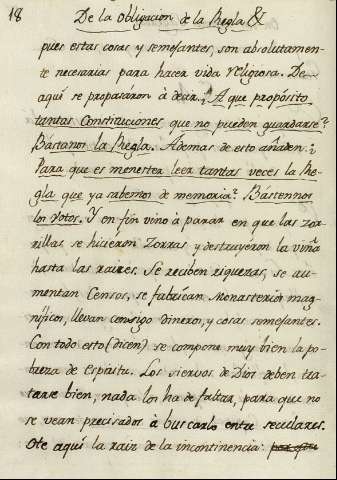 18
De la obligacion de la Regla &
pues estas cosas y semejantes, son absolutamen-
te necesarias para hacer vida religiosa. De
aqui se propasáron à decir. ¿A que propósito
tantas Constituciones que no pueden guardarse?
Bástanos la Regla. Ademas de esto añaden. ¿
Para que es menester leer tantas veces la Re-
gla que ya sabemos de memoria? Bástennos
los votos. Y en fin vino à parar en que las zor-
rillas se hicieron Zorras y destruyeron la viña
hasta las raices. Se reciben riquezas, se au-
mentan Censos, se fabrican Monasterios mag-
nificos, llevan consigo dineros, y cosas semejantes.
Con todo esto (dicen) se compone muy bien la po-
breza de Espiritu. Los siervos de Dios deben tra-
tarse bien, nada los ha de faltar, para que no
se vean precisados à buscarlo entre seculares.
Ote aqui la raiz de la incontinencia: